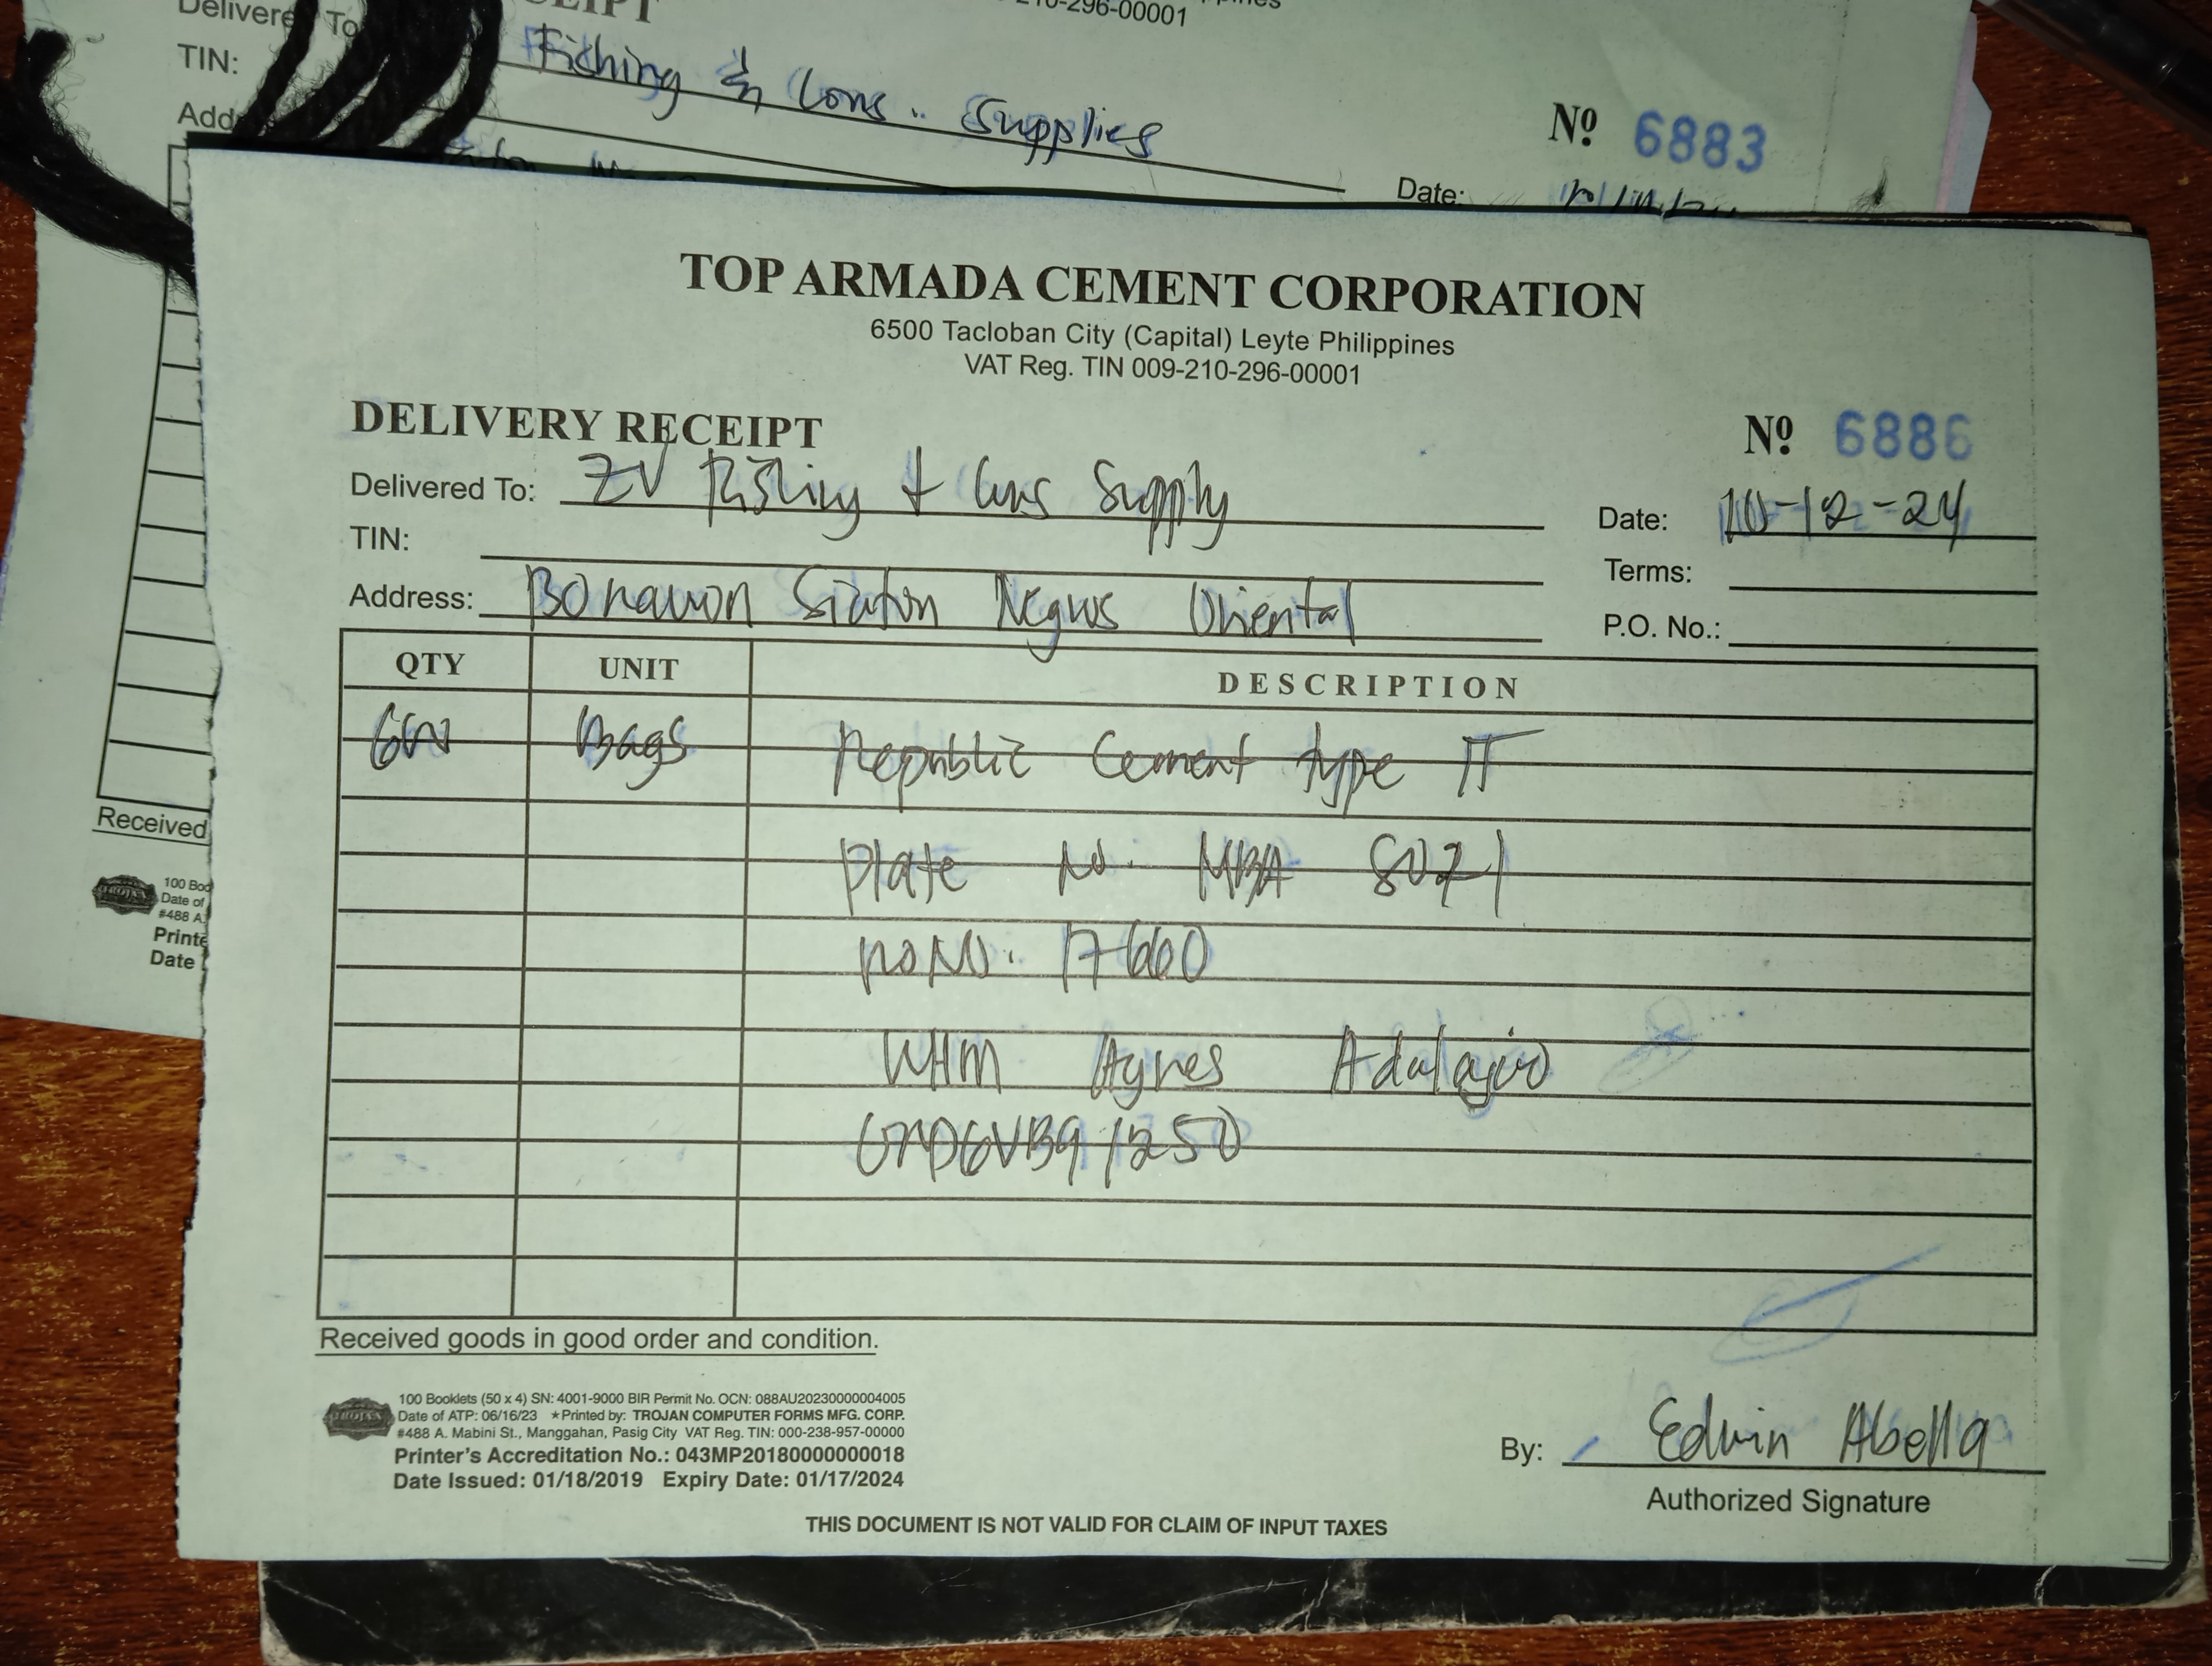 Delivere To
TIN:
Fishing & Cons.. Supplies
Add
296-00001
Nº 6883
Date:
TOP ARMADA CEMENT CORPORATION
6500 Tacloban City (Capital) Leyte Philippines
VAT Reg. TIN 009-210-296-00001
DELIVERY RECEIPT
Nº 6886
Delivered To: ZV Fishing + Cons Supply
Date: 10-12-24
TIN:
Terms:
Address: Bonawon Siaton Negros Oriental
P.O. No.:
QTY UNIT DESCRIPTION
600 Bags Republic Cement type IT
Plate No. MBA 8021
PO No. 17660
WHM Agnes
Received goods in good order and condition.
100 Booklets (50 x 4) SN: 4001-9000 BIR Permit No. OCN: 088AU20230000004005
Date of ATP: 06/16/23 ★Printed by: TROJAN COMPUTER FORMS MFG. CORP.
#488 A. Mabini St., Manggahan, Pasig City VAT Reg. TIN: 000-238-957-00000
Printer's Accreditation No.: 043MP20180000000018
Date Issued: 01/18/2019 Expiry Date: 01/17/2024
By: Edwin Abella
Authorized Signature
THIS DOCUMENT IS NOT VALID FOR CLAIM OF INPUT TAXES
Received
100 Boo
Date of
#488 A.
Printe
Date